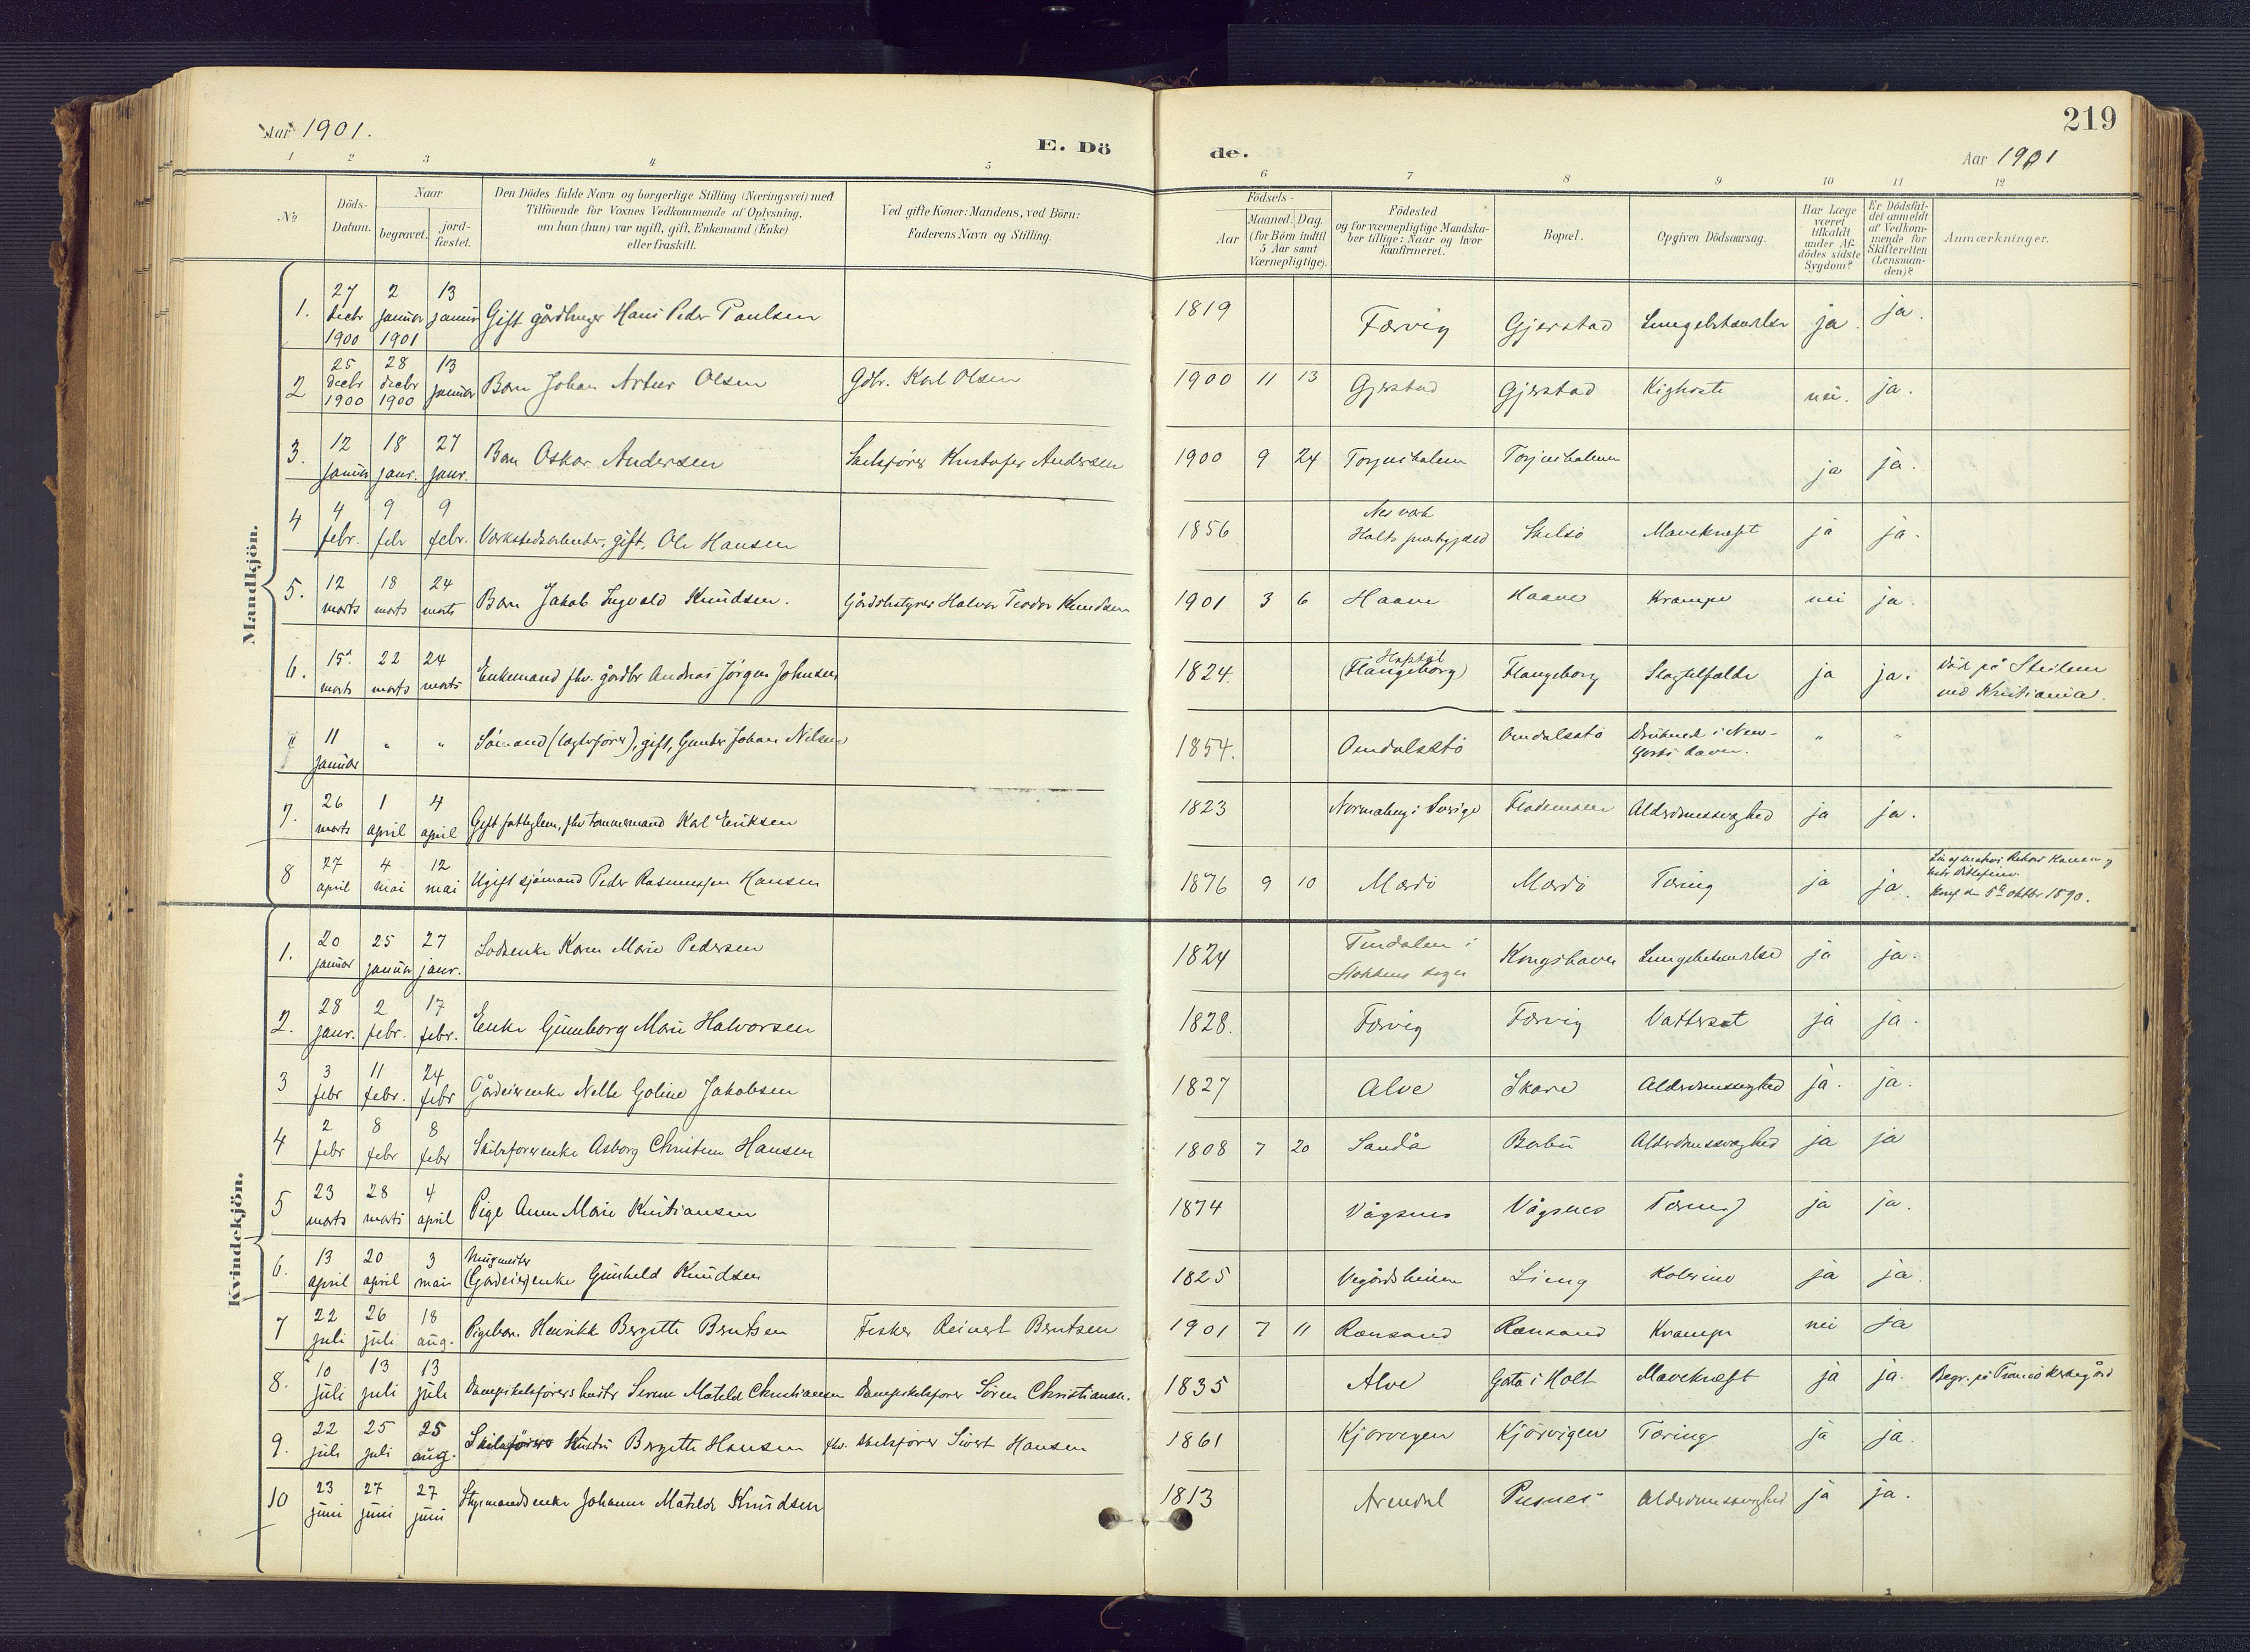 Aar 1901.
E. Dö
de.
219
Aar 1901
1 2 3 4 5 6 7 8 9 10 11 12
No
Döds-Datum.
Naar
begravet.
jord-fæstet.
Den Dödes fulde Navn og borgerlige Stilling (Næringsvei) med
Tilföiende for Voxnes Vedkommende af Oplysning,
om han (hun) var ugift, gift, Enkemand (Enke)
eller fraskilt.
Ved gifte Koner: Mandens, ved Börn:
Faderens Navn og Stilling.
Födsels-
Aar
Maaned. Dag.
(for Börn indtil
5 Aar samt
Værnepligtige).
Födested
og for værnepligtige Mandska-
ber tillige: Naar og hvor
konfirmeret.
Bopæl.
Opgiven Dödsaarsag.
Har Læge
været
tilkaldt
under Af-
dödes sidste
Sygdom?
Er Dödsfal-
det anmeldt
af Vedkom-
mende for
Skifteretten
(Lensman-
den)?
Anmærkninger.
Mandkjön.
1. 27 decbr 1900 2 januar 1901 13 januar Gift gårdbruger Hans Peder Paulsen 1819 Færvig Gjerstad Lungebetændelse ja. ja.
2 25 decbr 1900 28 decbr 1900 13 januar Barn Johan Artur Olsen Gdbr. Karl Olsen 1900 11 13 Gjerstad Gjerstad Kighoste nei. ja.
3. 12 januar 18 janr. 27 janr. Barn Oskar Andersen Skibsfører Kristofer Andersen 1900 9 24 Torjusholmen Torjusholmen ja ja.
4 4 febr. 9 febr 9 febr. Værkstedsarbeider, gift, Ole Hansen 1856 Nes værk Holts præstegjeld Skilsø Mavekræft ja ja.
5. 12 marts 18 marts 24 marts Barn Jakob Ingvald Knudsen. Gårdbestyrer Halvor Teodor Knudsen 1901 3 6 Haave Haave Krampe nei ja.
6. 15 marts 22 marts 24 marts Enkemand fhv. gårdbr Andreas Jørgen Johnsen 1824. (Flangeborg) Flangeborg Slagtilfælde ja ja. Død på Steilene ved Kristiania.
" 11 januar " " Sømand (lagtefører), gift, Gunder Johan Nilsen 1854. Omdalsstø Omdalsstø Druknet i New-Yorks havn. " "
7. 26 marts 1 april 4 april Gift fattiglem, fhv tømmermand Karl Eriksen 1823 i Sverige Alderdomssvaghed ja ja.
8 27 april 4 mai 12 mai Ugift sjømand Peder Rasmussen Hansen 1876 9 10 Mærdø Mærdø Tæring ja ja. Konf. den 5te oktbr 1890.
Kvindekjön.
1. 20 januar 25 januar 27 janr. Lodsenke Karen Marie Pedersen 1824 i Stokkens sogn Kongshavn Lungebetændelse ja ja.
2. 28 janr. 2 febr. 17 febr. Enke Gunborg Marie Halvorsen 1828. Færvig Færvig Vattersot ja ja.
3 3 febr 11 febr. 24 febr Gårdeierenke Nelle Goline Jakobsen 1827 Alve Skare Alderdomssvaghed ja. ja.
4 2 febr 8 febr 8 febr Skibsførerenke Asborg Christine Hansen 1808 7 20 Sandå Barbu Alderdomssvaghed ja ja
5 23 marts 28 marts 4 april Pige Anne Marie Kristiansen 1874 Vågsnes Vågsnes Tæring ja ja.
6. 13 april 20 april 3 mai (Gårdeier)enke Gunhild Knudsen 1825 Vegårdsheien Lieng Kolerine ja ja.
7 22 juli 26 juli 18 aug. Pigebarn Henrikke Bergitte Berntsen Fisker Reinert Berntsen 1901 7 11 Rænsand Rænsand Krampe nei ja
8. 10 juli 13 juli 13 juli Dampskibsførers hustr Serine Matilde Christiansen Dampskibsfører Sören Christiansen. 1835 Alve Gata i Holt Mavekræft ja ja. Begr. på Tromø kirkegård
9. 22 juli 25 juli 25 aug. Skibsførers Hustru Bergitte Hansen fhv. Skibsfører Sivert Hansen 1861 Kjørvigen Kjørvigen Tæring ja ja.
10 23 juni 27 juni 27 juni Styrmandsenke Johanne Matilde Knudsen 1813 Arendal Pusnes Alderdomssvaghed ja ja.